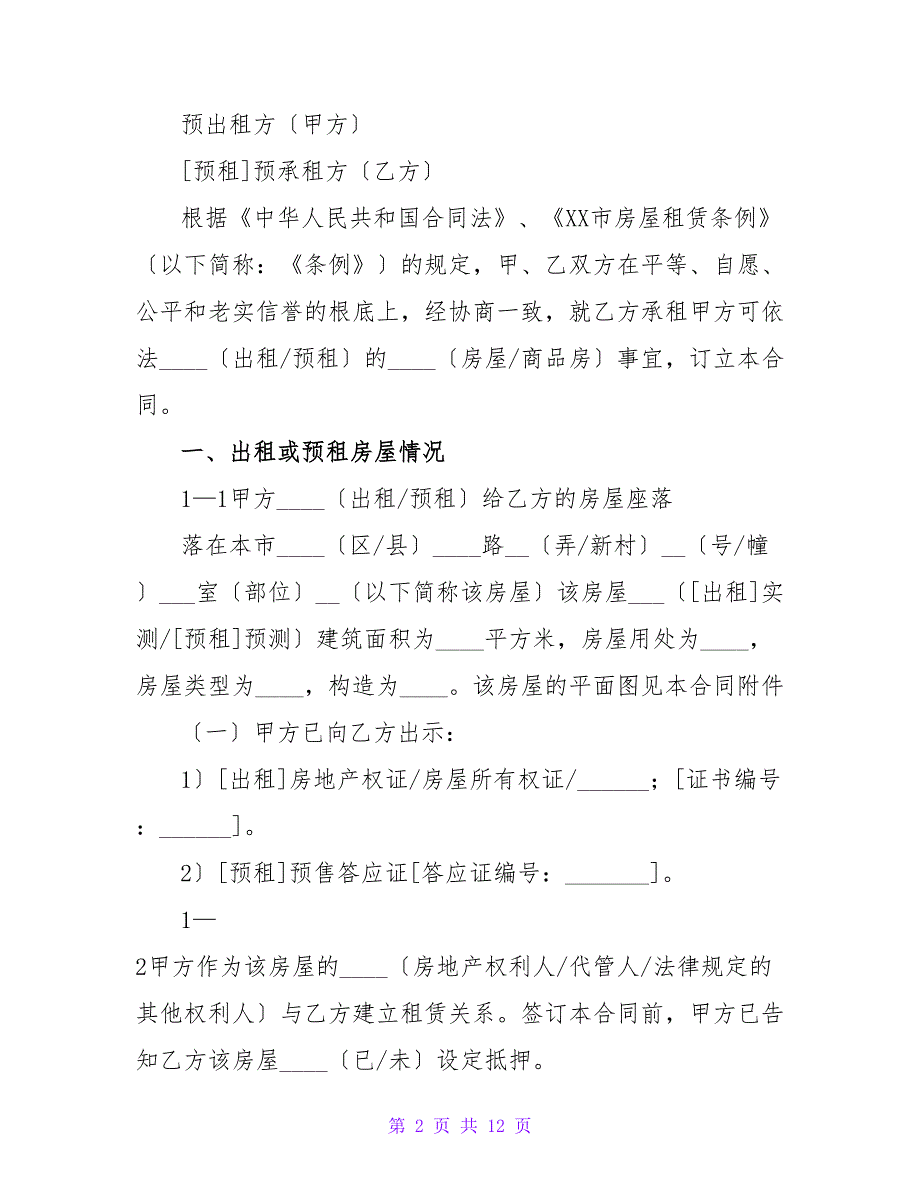 预出租方〔甲方〕
[预租]预承租方〔乙方〕
根据《中华人民共和国合同法》、《XX市房屋租赁条例》
〔以下简称：《条例》〕的规定，甲、乙双方在平等、自愿、
公平和老实信誉的根底上，经协商一致，就乙方承租甲方可依
法____〔出租/预租〕的____〔房屋/商品房〕事宜，订立本合
同。
一、出租或预租房屋情况
1—1甲方____〔出租/预租〕给乙方的房屋座落
落在本市____〔区/县〕____路__〔弄/新村〕__〔号/幢
〕___室〔部位〕__〔以下简称该房屋〕该房屋___〔[出租]实
测/[预租]预测〕建筑面积为____平方米，房屋用处为____，
房屋类型为____，构造为____。该房屋的平面图见本合同附件
〔一〕甲方已向乙方出示：
1〕[出租]房地产权证/房屋所有权证/______；[证书编号
：______]。
2〕[预租]预售答应证[答应证编号：_______]。
1—
2甲方作为该房屋的____〔房地产权利人/代管人/法律规定的
其他权利人〕与乙方建立租赁关系。签订本合同前，甲方已告
知乙方该房屋____〔已/未〕设定抵押。
第 2 页 共 12 页